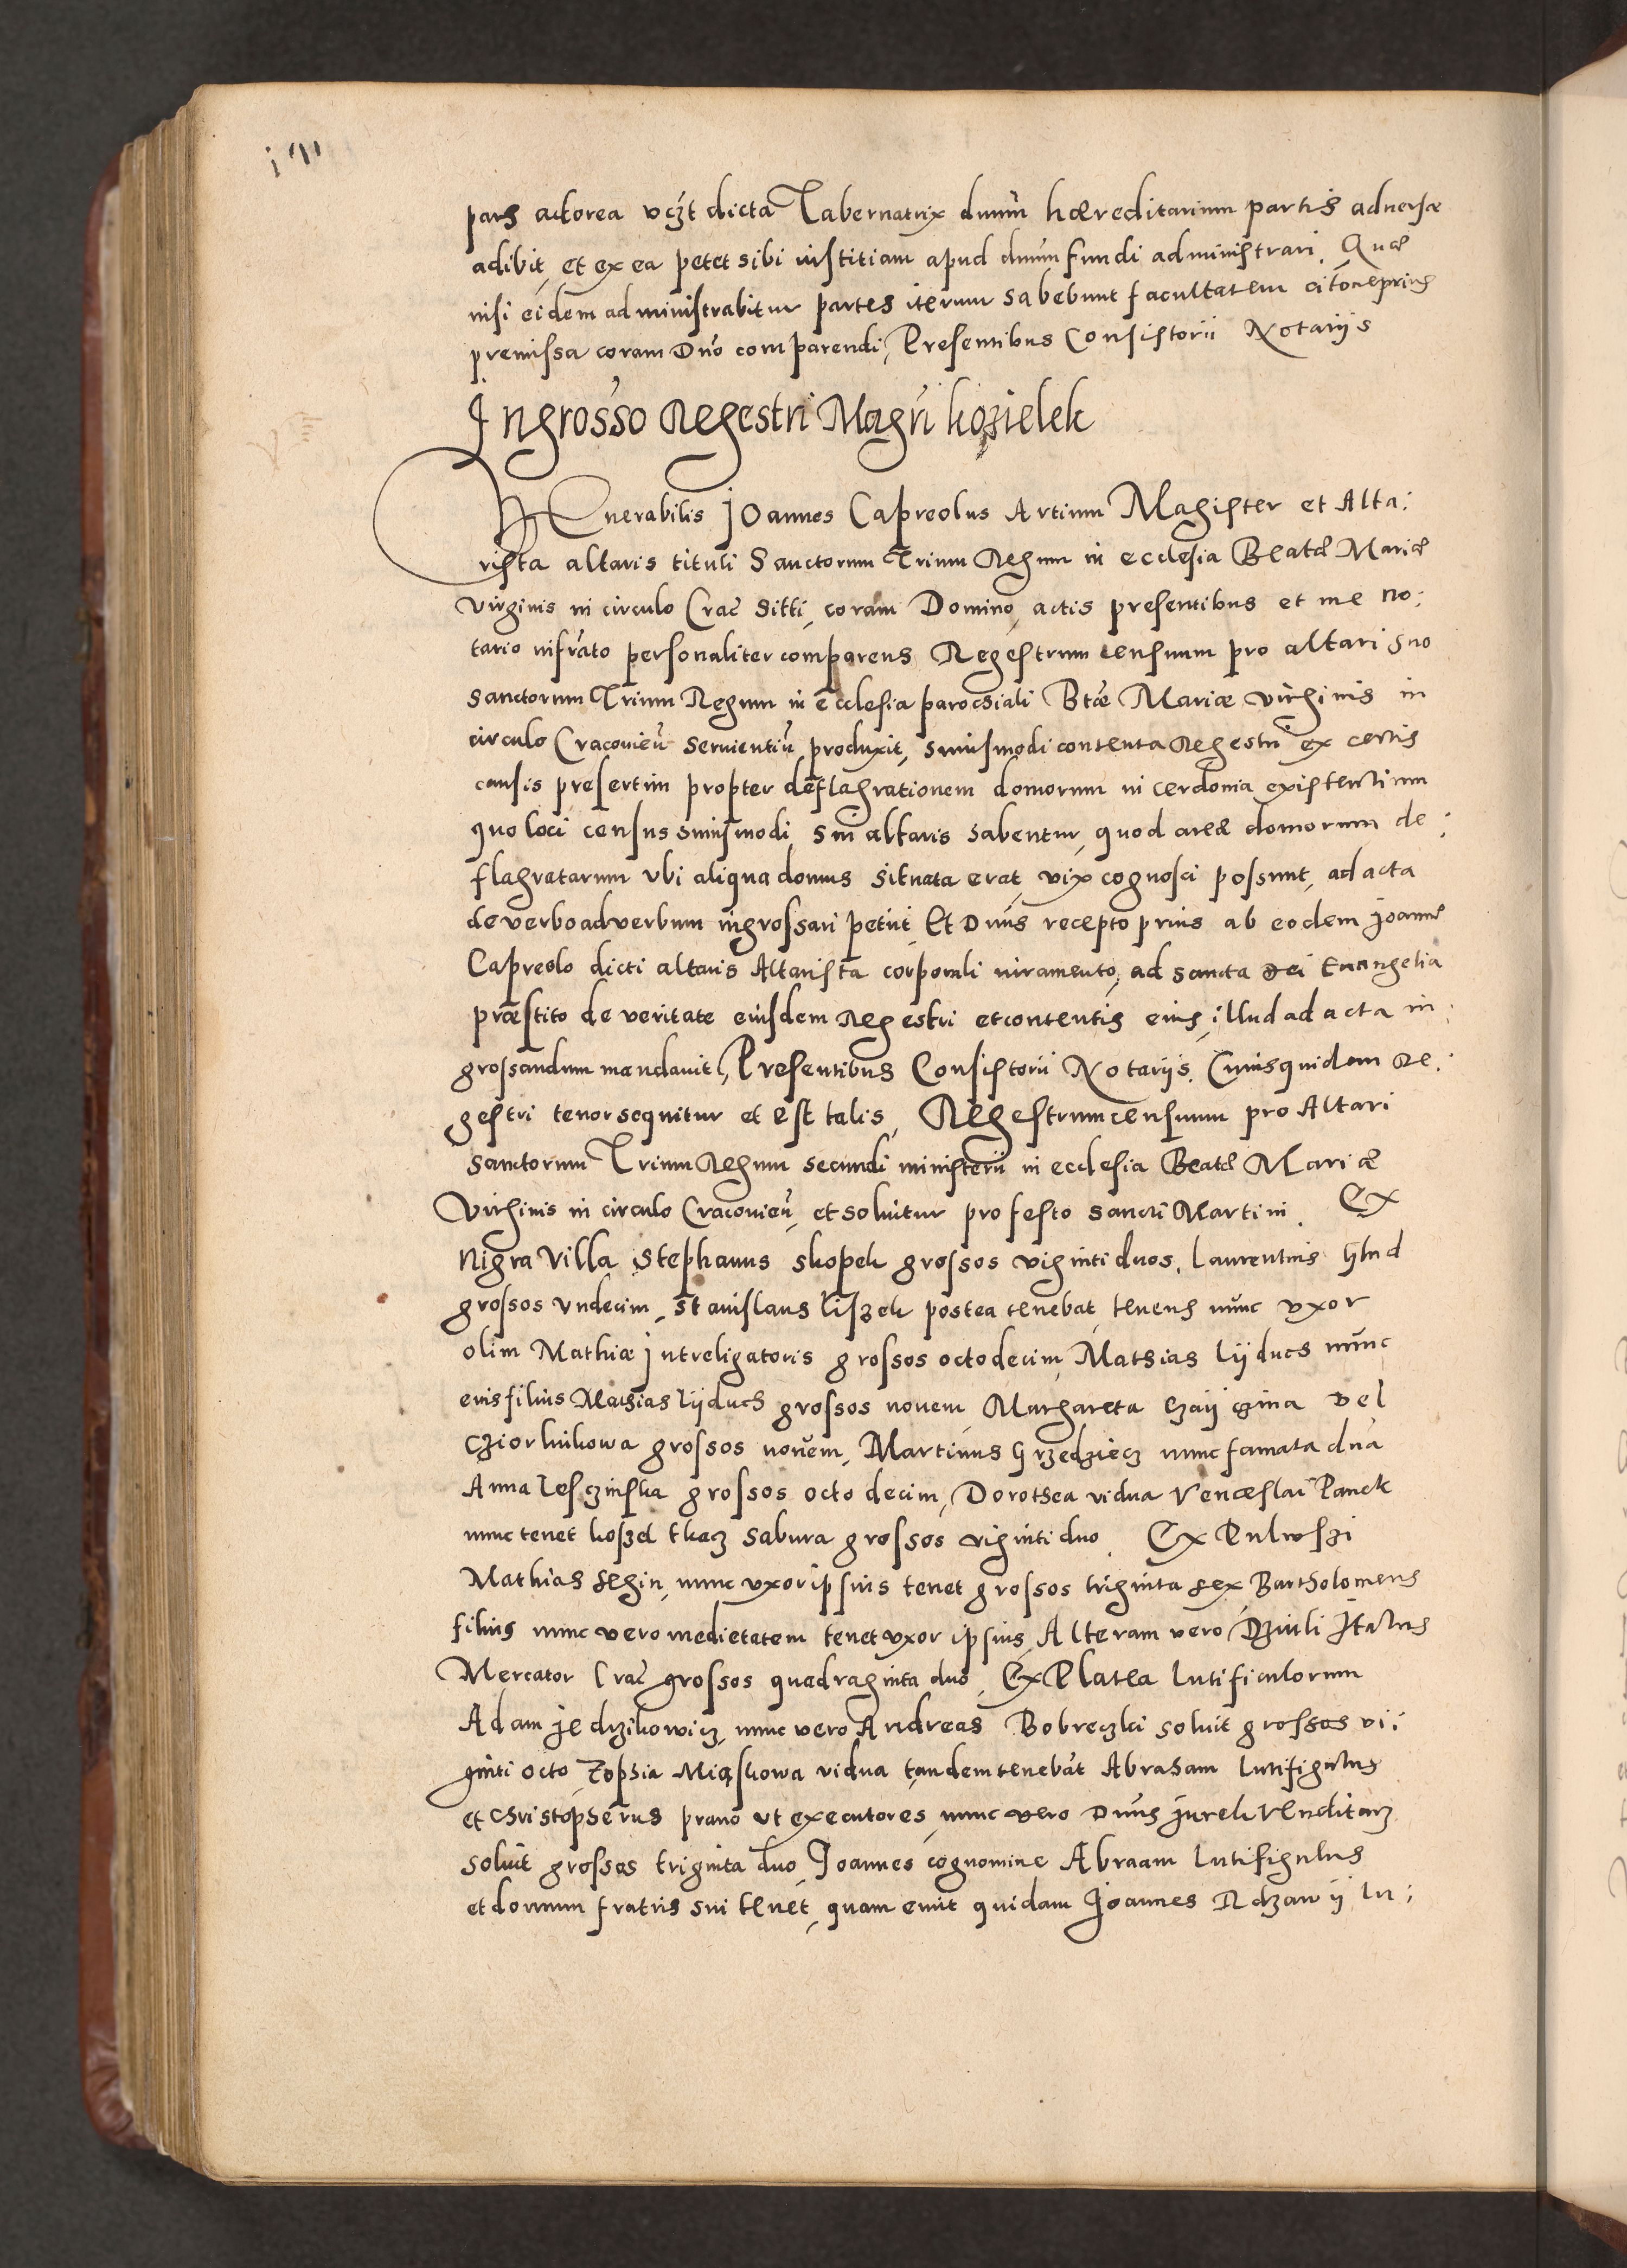 pars actorea vczt dicta Tabernatrix dnum hæreditarium partis aduersæ
adibit, et ex ea petet sibi iustitiam apud dnum fundi administrari. Quæ
nisi eidem administrabitur partes iterum habebunt facultatem citone prius
premissa coram Dno comparendi, Presentibus Consistorii Notariis
Ingrosso Regestri Magri kozielek
VEnerabilis Joannes Capreolus Artium Magister et Alta:
rista altaris tituli Sanctorum Trium Regum in ecclesia Beatæ Mariæ
Virginis in circulo Crac sitti, coram Domino, actis presentibus et me no:
tario infrato personaliter comparens Regestrum censuum pro altari suo
Sanctorum Trium Regum in Ecclesia parochiali Btæ Mariæ virginis in
circulo Cracouien seruientiu produxit, huiusmodi contenta Regestri ex certis
causis presertim propter deflagrationem domorum in cerdonia existentium
quo loci census huiusmodi sui altaris habentur, quod areæ domorum de:
flagratarum vbi aliqua domus situata erat, vix cognosci possunt, ad acta
de verbo ad verbum ingrossari petiit, Et Dnus recepto prius ab eodem Joanne
Capreolo dicti altaris Altarista corporali iuramento, ad sancta dei Euangelia
præstito de veritate eiusdem Regestri et contentis eius, illud ad acta in:
grossandum mandauit, Presentibus Consistorii Notariis. Cuiusquidem Re:
gestri tenor sequitur et est talis, Regestrum censuum pro Altari
Sanctorum Trium Regum secundi ministerii in ecclesia Beatæ Mariæ
Virginis in circulo Cracouien, et soluitur pro festo sancti Martini. Ex
Nigra Villa Stephanus skopek grossos viginti duos, Laurentius
grossos vndecim, Stanislaus liszek postea tenebat, tenens nunc vxor
olim Mathiæ Jntreligatoris grossos octodecim, Mathias lijduch nunc
eius filius Mathias lijduch grossos nouem, Margareta vel
cziorlnikowa grossos nouem, Martinus Grzedziecz nunc famata dna
Anna lesczinska grossos octo decim, Dorothea vidua Venceslai Panek
nunc tenet koszel tkacz Sabura grossos viginti duo. Ex Pulwszi
Mathias segin, nunc vxor ipsius tenet grossos triginta sex, Bartholomeus
filius nunc vero medietatem tenet vxor ipsius, Alteram vero Dziuli Jtalus
Mercator Crac grossos quadraginta duo, Ex Platea lutificulorum
Adam jedrzikowicz, nunc vero Andreas Bobreczki soluit grossos vi:
ginti octo, Zophia Miąskowa vidua tandem tenebat Abraham lutifigulus
et Christopherus prano vt executores, nunc vero Dnus jurek Venditarz
soluit grossos triginta duo, Joannes cognomine Abraam lutifigulus
et domum fratris sui tenet, quam emit quidam Joannes Rdzawij lu: